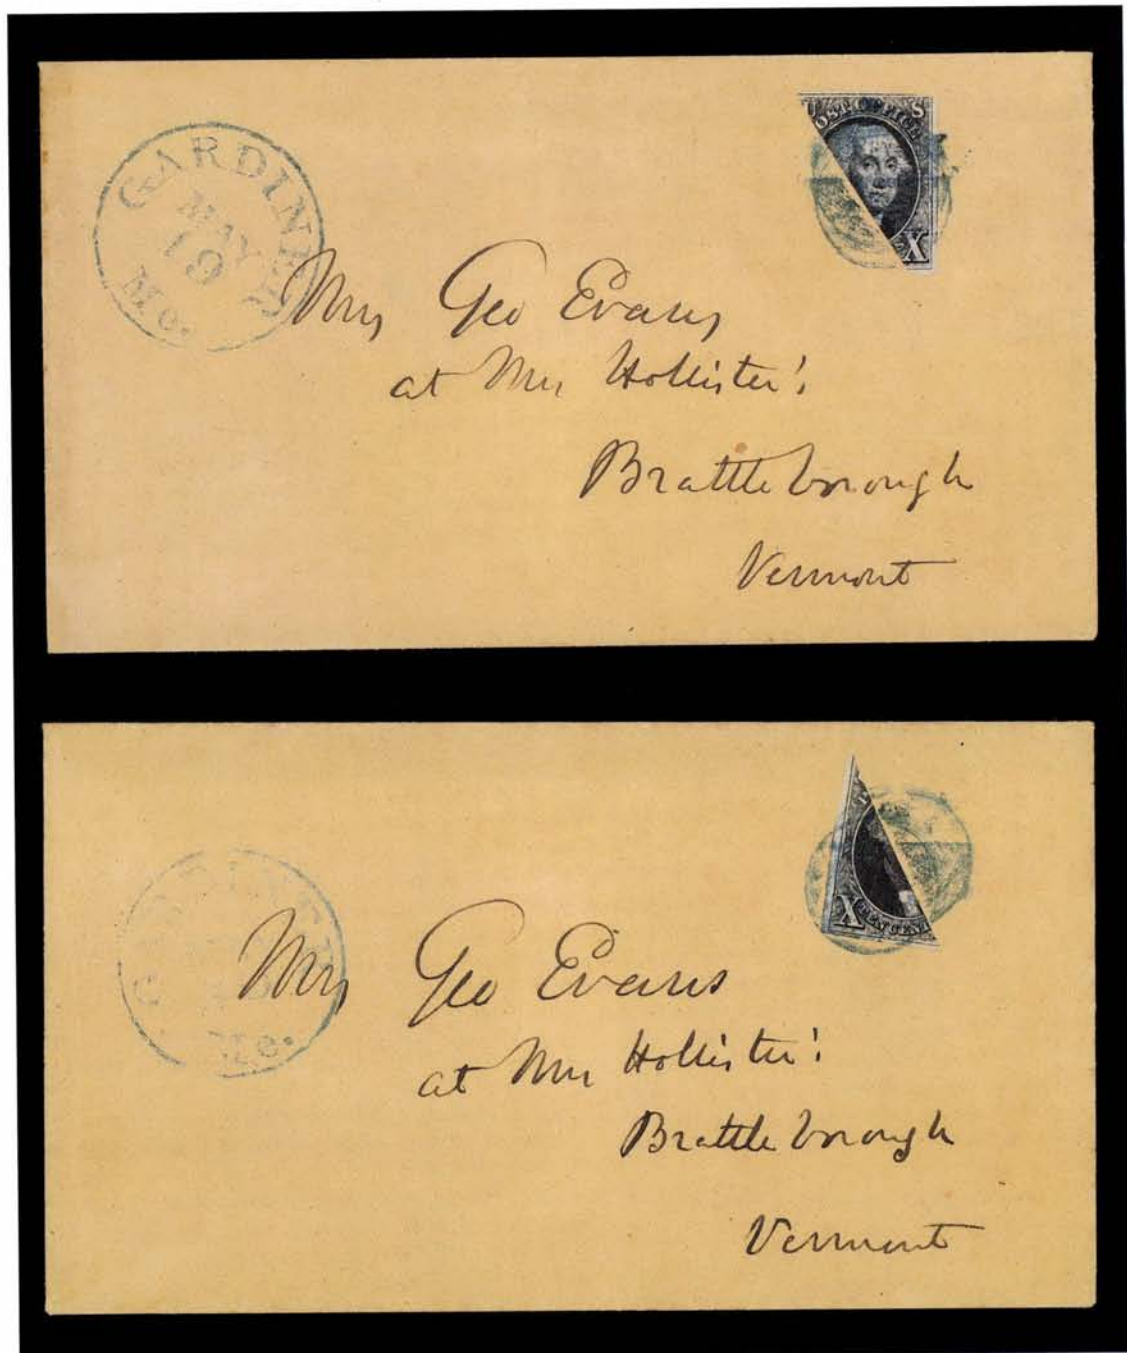 GARDINER
MAY
19
Me.
U S
POST OFFICE
X
Mrs Geo Evans
at Mrs Hollister's
Brattleborough
Vermont
X TEN CENT
Me.
Mrs Geo Evans
at Mrs Hollister's
Brattleborough
Vermont